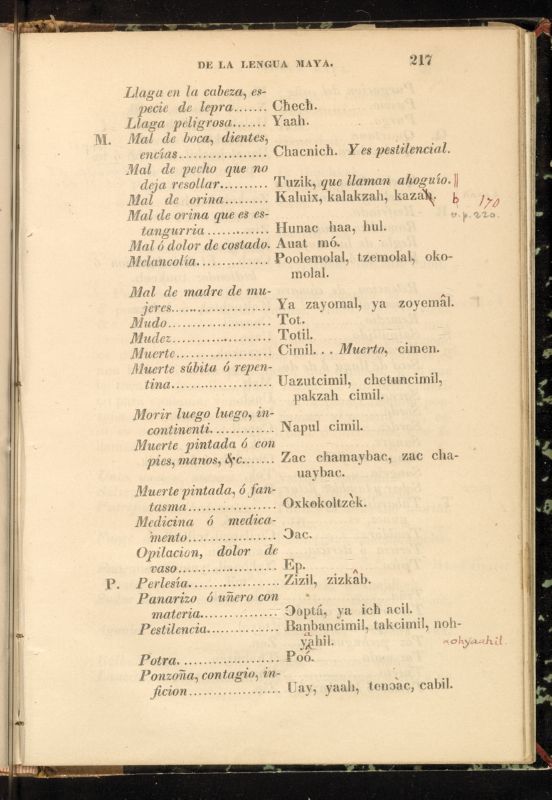 DE LA LENGUA MAYA. 217
Llaga en la cabeza, es-
pecie de lepra....... Cħech.
Llaga peligrosa....... Yaah.
M. Mal de boca, dientes,
encías................... Chacnich. Y es pestilencial.
Mal de pecho que no
deja resollar.......... Tuzik, que llaman ahoguío. ||
Mal de orina........... Kaluix, kalakzah, kazah. b 170
Mal de orina que es es- v. p. 220.
tangurria............. Hunac haa, hul.
Mal ó dolor de costado. Auat mó.
Melancolía.............. Poolemolal, tzemolal, oko-
molal.
Mal de madre de mu-
jeres...................... Ya zayomal, ya zoyemâl.
Mudo...................... Tot.
Mudez..................... Totil.
Muerte.................... Cimil... Muerto, cimen.
Muerte súbita ó repen-
tina....................... Uazutcimil, chetuncimil,
pakzah cimil.
Morir luego luego, in-
continenti............. Napul cimil.
Muerte pintada ó con
pies, manos, &c....... Zac chamaybac, zac cha-
uaybac.
Muerte pintada, ó fan-
tasma................... Oxkokoltzèk.
Medicina ó medica-
mento................... Ɔac.
Opilacion, dolor de
vaso...................... Ep.
P. Perlesía.................. Zizil, zizkâb.
Panarizo ó uñero con
materia................ Ɔoptá, ya icħ acil.
Pestilencia.............. Banbancimil, takcimil, noh-
yahil. nohyaahil.
Potra...................... Poó.
Ponzoña, contagio, in-
ficion.................... Uay, yaah, tenɔàc, cabil.